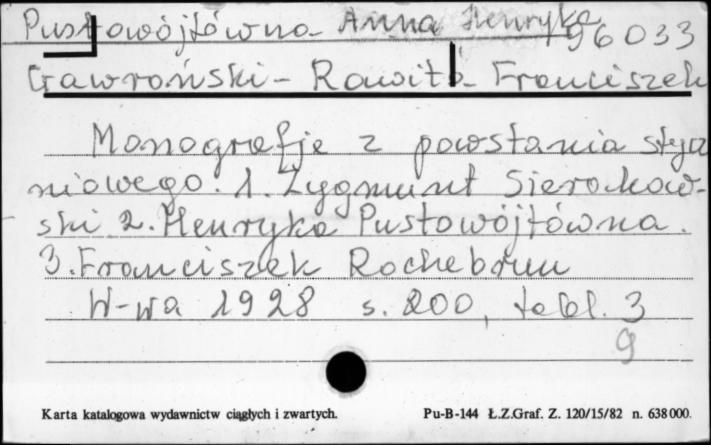 Pustowójtówna Anna Henryka
96033
Gawroński-Rawita Franciszek
Monografje z powstania stycz
niowego. 1. Zygmunt Sierakow-
ski 2. Henryka Pustowójtówna.
3. Franciszek Rochebrun
W-wa 1928 s. 200, tabl. 3
9
Karta katalogowa wydawnictw ciągłych i zwartych. Pu-B-144 Ł.Z.Graf. Z. 120/15/82 n. 638000.